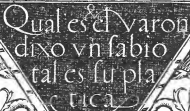 &
Qual es el varon
dixo vn sabio
tal es su pla
tica